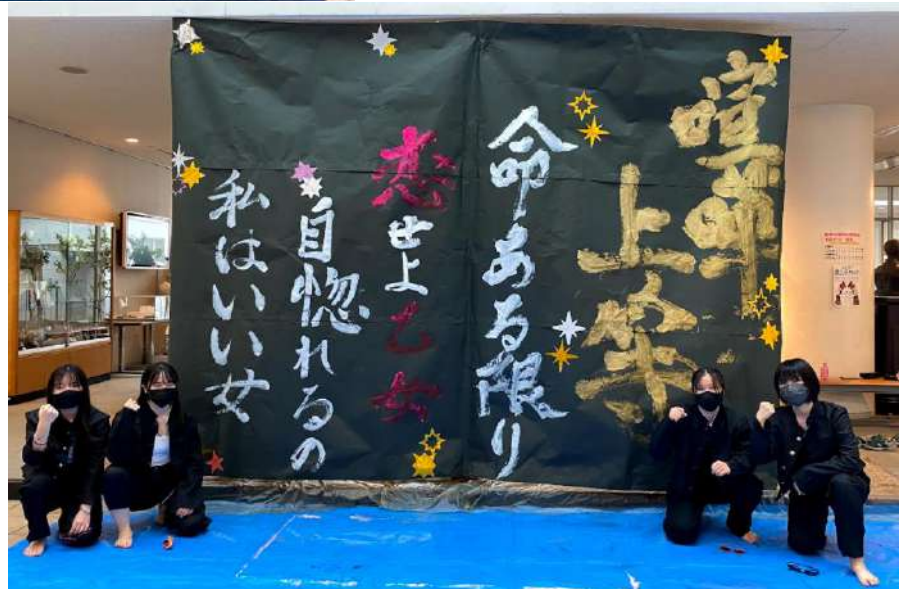 喧嘩
上等
命ある限り
恋せよ乙女
自惚れるの
私はいい女